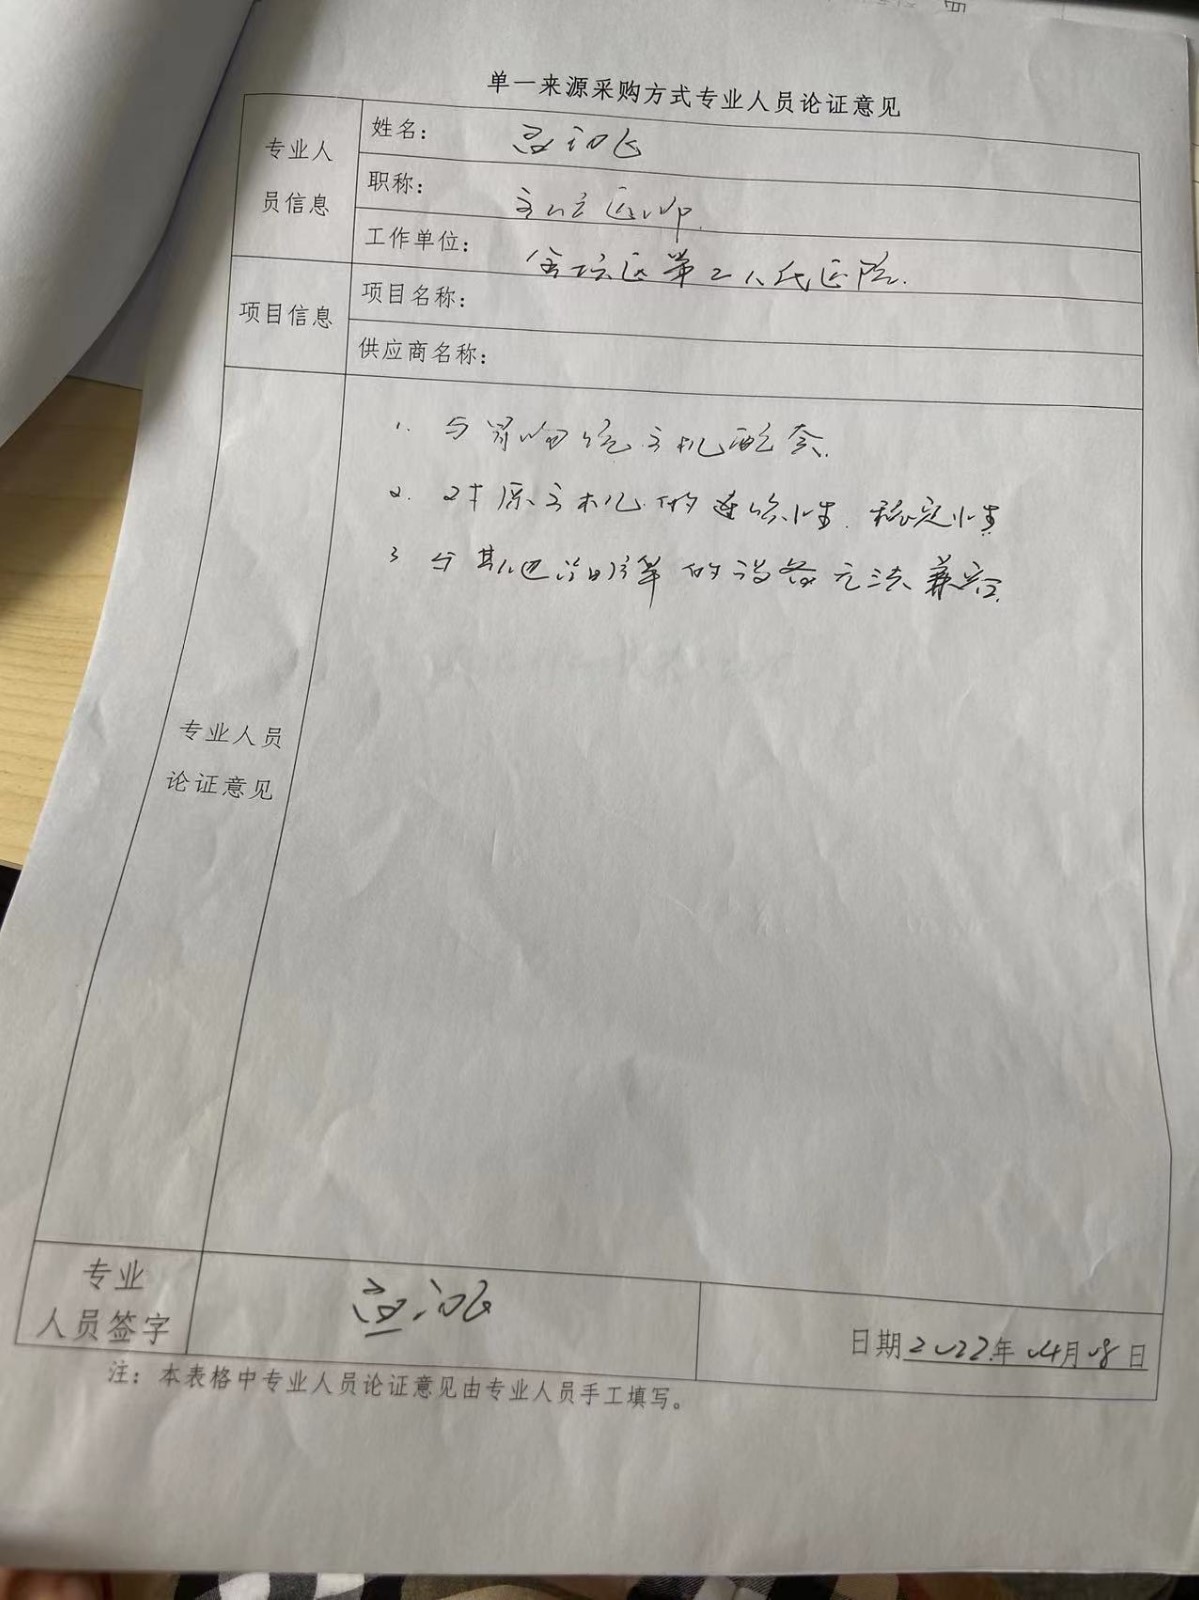 单一来源采购方式专业人员论证意见
专业人员信息
姓名：
职称： 主治医师.
工作单位： 金坛区第二人民医院.
项目信息
项目名称：
供应商名称：
专业人员论证意见
1. 与原 主机配套.
2. 对原主机的连续性. 稳定性
3 与其他 的设备无法兼容.
专业人员签字
日期2022年04月08日
注：本表格中专业人员论证意见由专业人员手工填写。